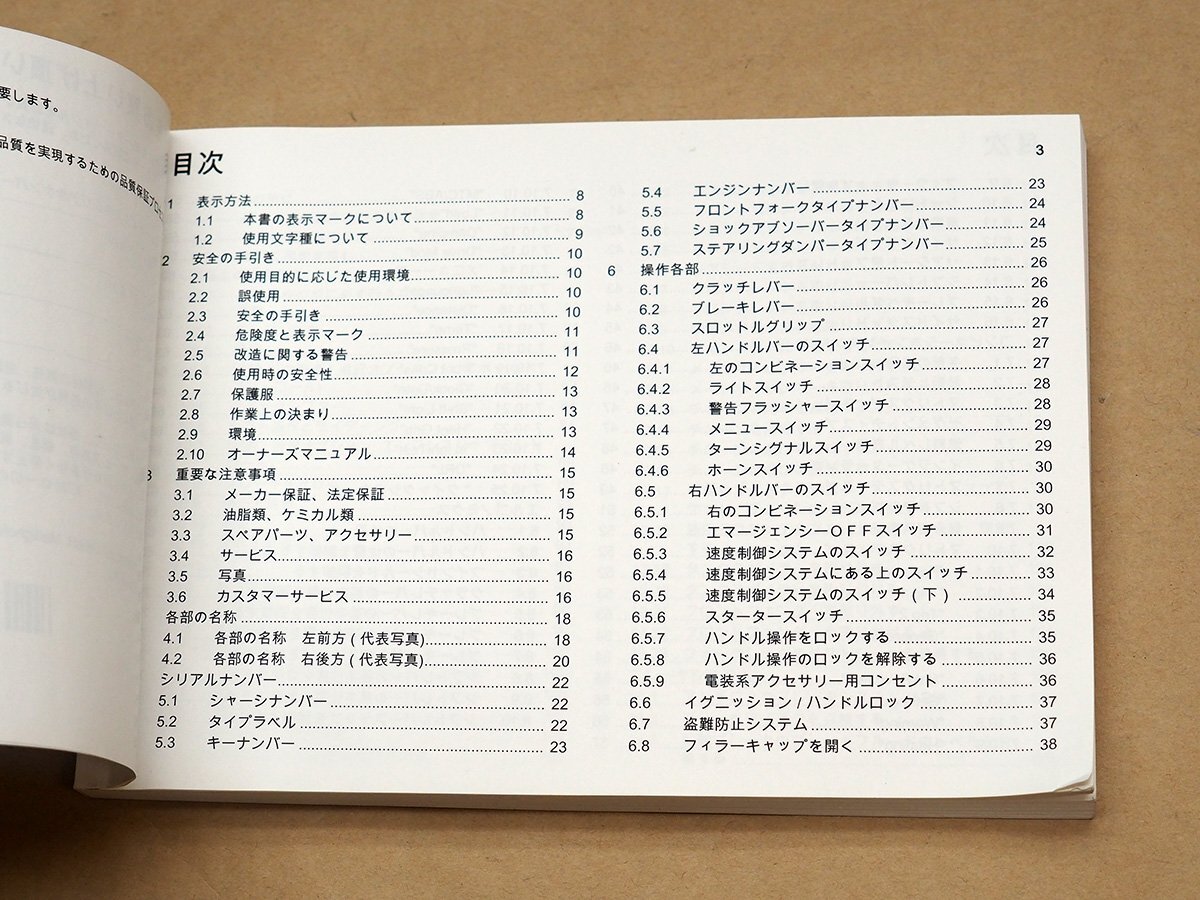 要します。
品質を実現するための品質保証プロセ
目次
3
1 表示方法 8
1.1 本書の表示マークについて 8
1.2 使用文字種について 9
2 安全の手引き 10
2.1 使用目的に応じた使用環境 10
2.2 誤使用 10
2.3 安全の手引き 10
2.4 危険度と表示マーク 11
2.5 改造に関する警告 11
2.6 使用時の安全性 12
2.7 保護服 13
2.8 作業上の決まり 13
2.9 環境 13
2.10 オーナーズマニュアル 14
3 重要な注意事項 15
3.1 メーカー保証、法定保証 15
3.2 油脂類、ケミカル類 15
3.3 スペアパーツ、アクセサリー 15
3.4 サービス 16
3.5 写真 16
3.6 カスタマーサービス 16
各部の名称 18
4.1 各部の名称 左前方 (代表写真) 18
4.2 各部の名称 右後方 (代表写真) 20
シリアルナンバー 22
5.1 シャーシナンバー 22
5.2 タイプラベル 22
5.3 キーナンバー 23
5.4 エンジンナンバー 23
5.5 フロントフォークタイプナンバー 24
5.6 ショックアブソーバータイプナンバー 24
5.7 ステアリングダンパータイプナンバー 25
6 操作各部 26
6.1 クラッチレバー 26
6.2 ブレーキレバー 26
6.3 スロットルグリップ 27
6.4 左ハンドルバーのスイッチ 27
6.4.1 左のコンビネーションスイッチ 27
6.4.2 ライトスイッチ 28
6.4.3 警告フラッシャースイッチ 28
6.4.4 メニュースイッチ 29
6.4.5 ターンシグナルスイッチ 29
6.4.6 ホーンスイッチ 30
6.5 右ハンドルバーのスイッチ 30
6.5.1 右のコンビネーションスイッチ 30
6.5.2 エマージェンシーOFFスイッチ 31
6.5.3 速度制御システムのスイッチ 32
6.5.4 速度制御システムにある上のスイッチ 33
6.5.5 速度制御システムのスイッチ (下) 34
6.5.6 スタータースイッチ 35
6.5.7 ハンドル操作をロックする 35
6.5.8 ハンドル操作のロックを解除する 36
6.5.9 電装系アクセサリー用コンセント 36
6.6 イグニッション / ハンドルロック 37
6.7 盗難防止システム 37
6.8 フィラーキャップを開く 38